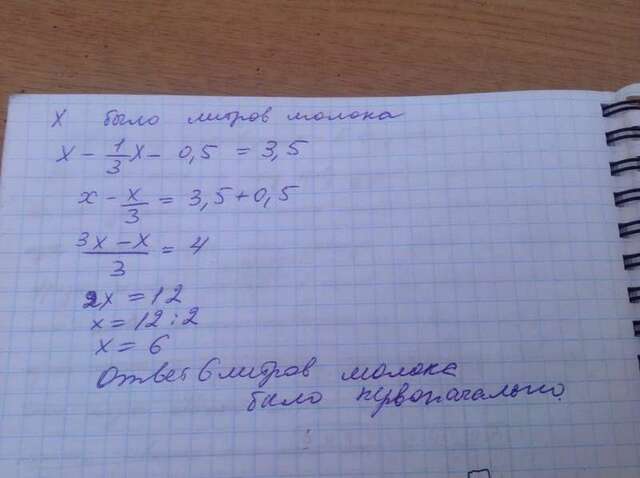 x было литров молока
x - 1/3 x - 0,5 = 3,5
x - x/3 = 3,5+0,5
3x - x/3 = 4
2x = 12
x = 12 : 2
x = 6
Ответ 6 литров молока
было первоначально.